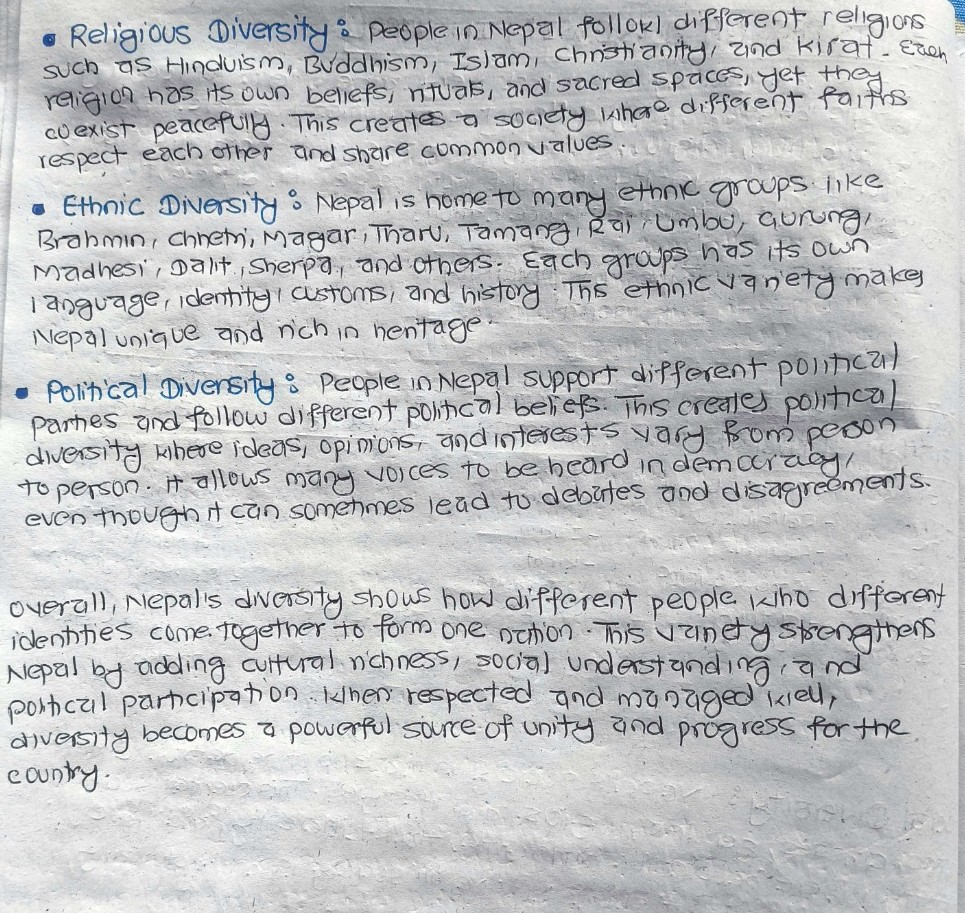 • Religious Diversity : People in Nepal follow different religions
such as Hinduism, Buddhism, Islam, Christianity, and Kirat. Each
religion has its own beliefs, rituals, and sacred spaces, yet they
coexist peacefully. This creates a society where different faiths
respect each other and share common values.
• Ethnic Diversity : Nepal is home to many ethnic groups like
Brahmin, Chhetri, Magar, Tharu, Tamang, Rai, Limbu, Gurung,
Madhesi, Dalit, Sherpa, and others. Each groups has its own
language, identity, customs, and history. This ethnic variety makes
Nepal unique and rich in heritage.
• Political Diversity : People in Nepal support different political
parties and follow different political beliefs. This creates political
diversity where ideas, opinions, and interests vary from person
to person. it allows many voices to be heard in democracy,
even though it can sometimes lead to debates and disagreements.
overall, Nepal's diversity shows how different people who different
identities come together to form one nation. This variety strengthens
Nepal by adding cultural richness, social understanding, and
political participation. When respected and managed well,
diversity becomes a powerful source of unity and progress for the
country.